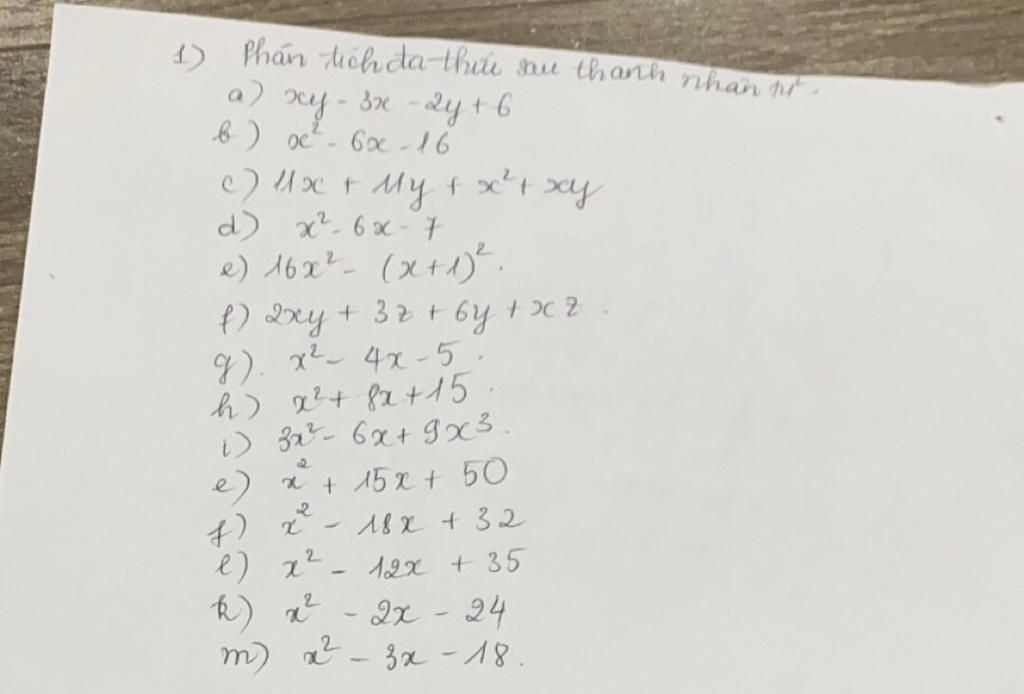 1) Phân tích đa thức sau thành nhân tử.
a) xy - 3x - 2y + 6
b) x² - 6x - 16
c) 11x + 11y + x² + xy
d) x² - 6x - 7
e) 16x² - (x+1)².
f) 2xy + 3z + 6y + xz.
g). x² - 4x - 5.
h) x² + 8x + 15.
i) 3x² - 6x + 9x³.
e) x² + 15x + 50
f) x² - 18x + 32
l) x² - 12x + 35
k) x² - 2x - 24
m) x² - 3x - 18.